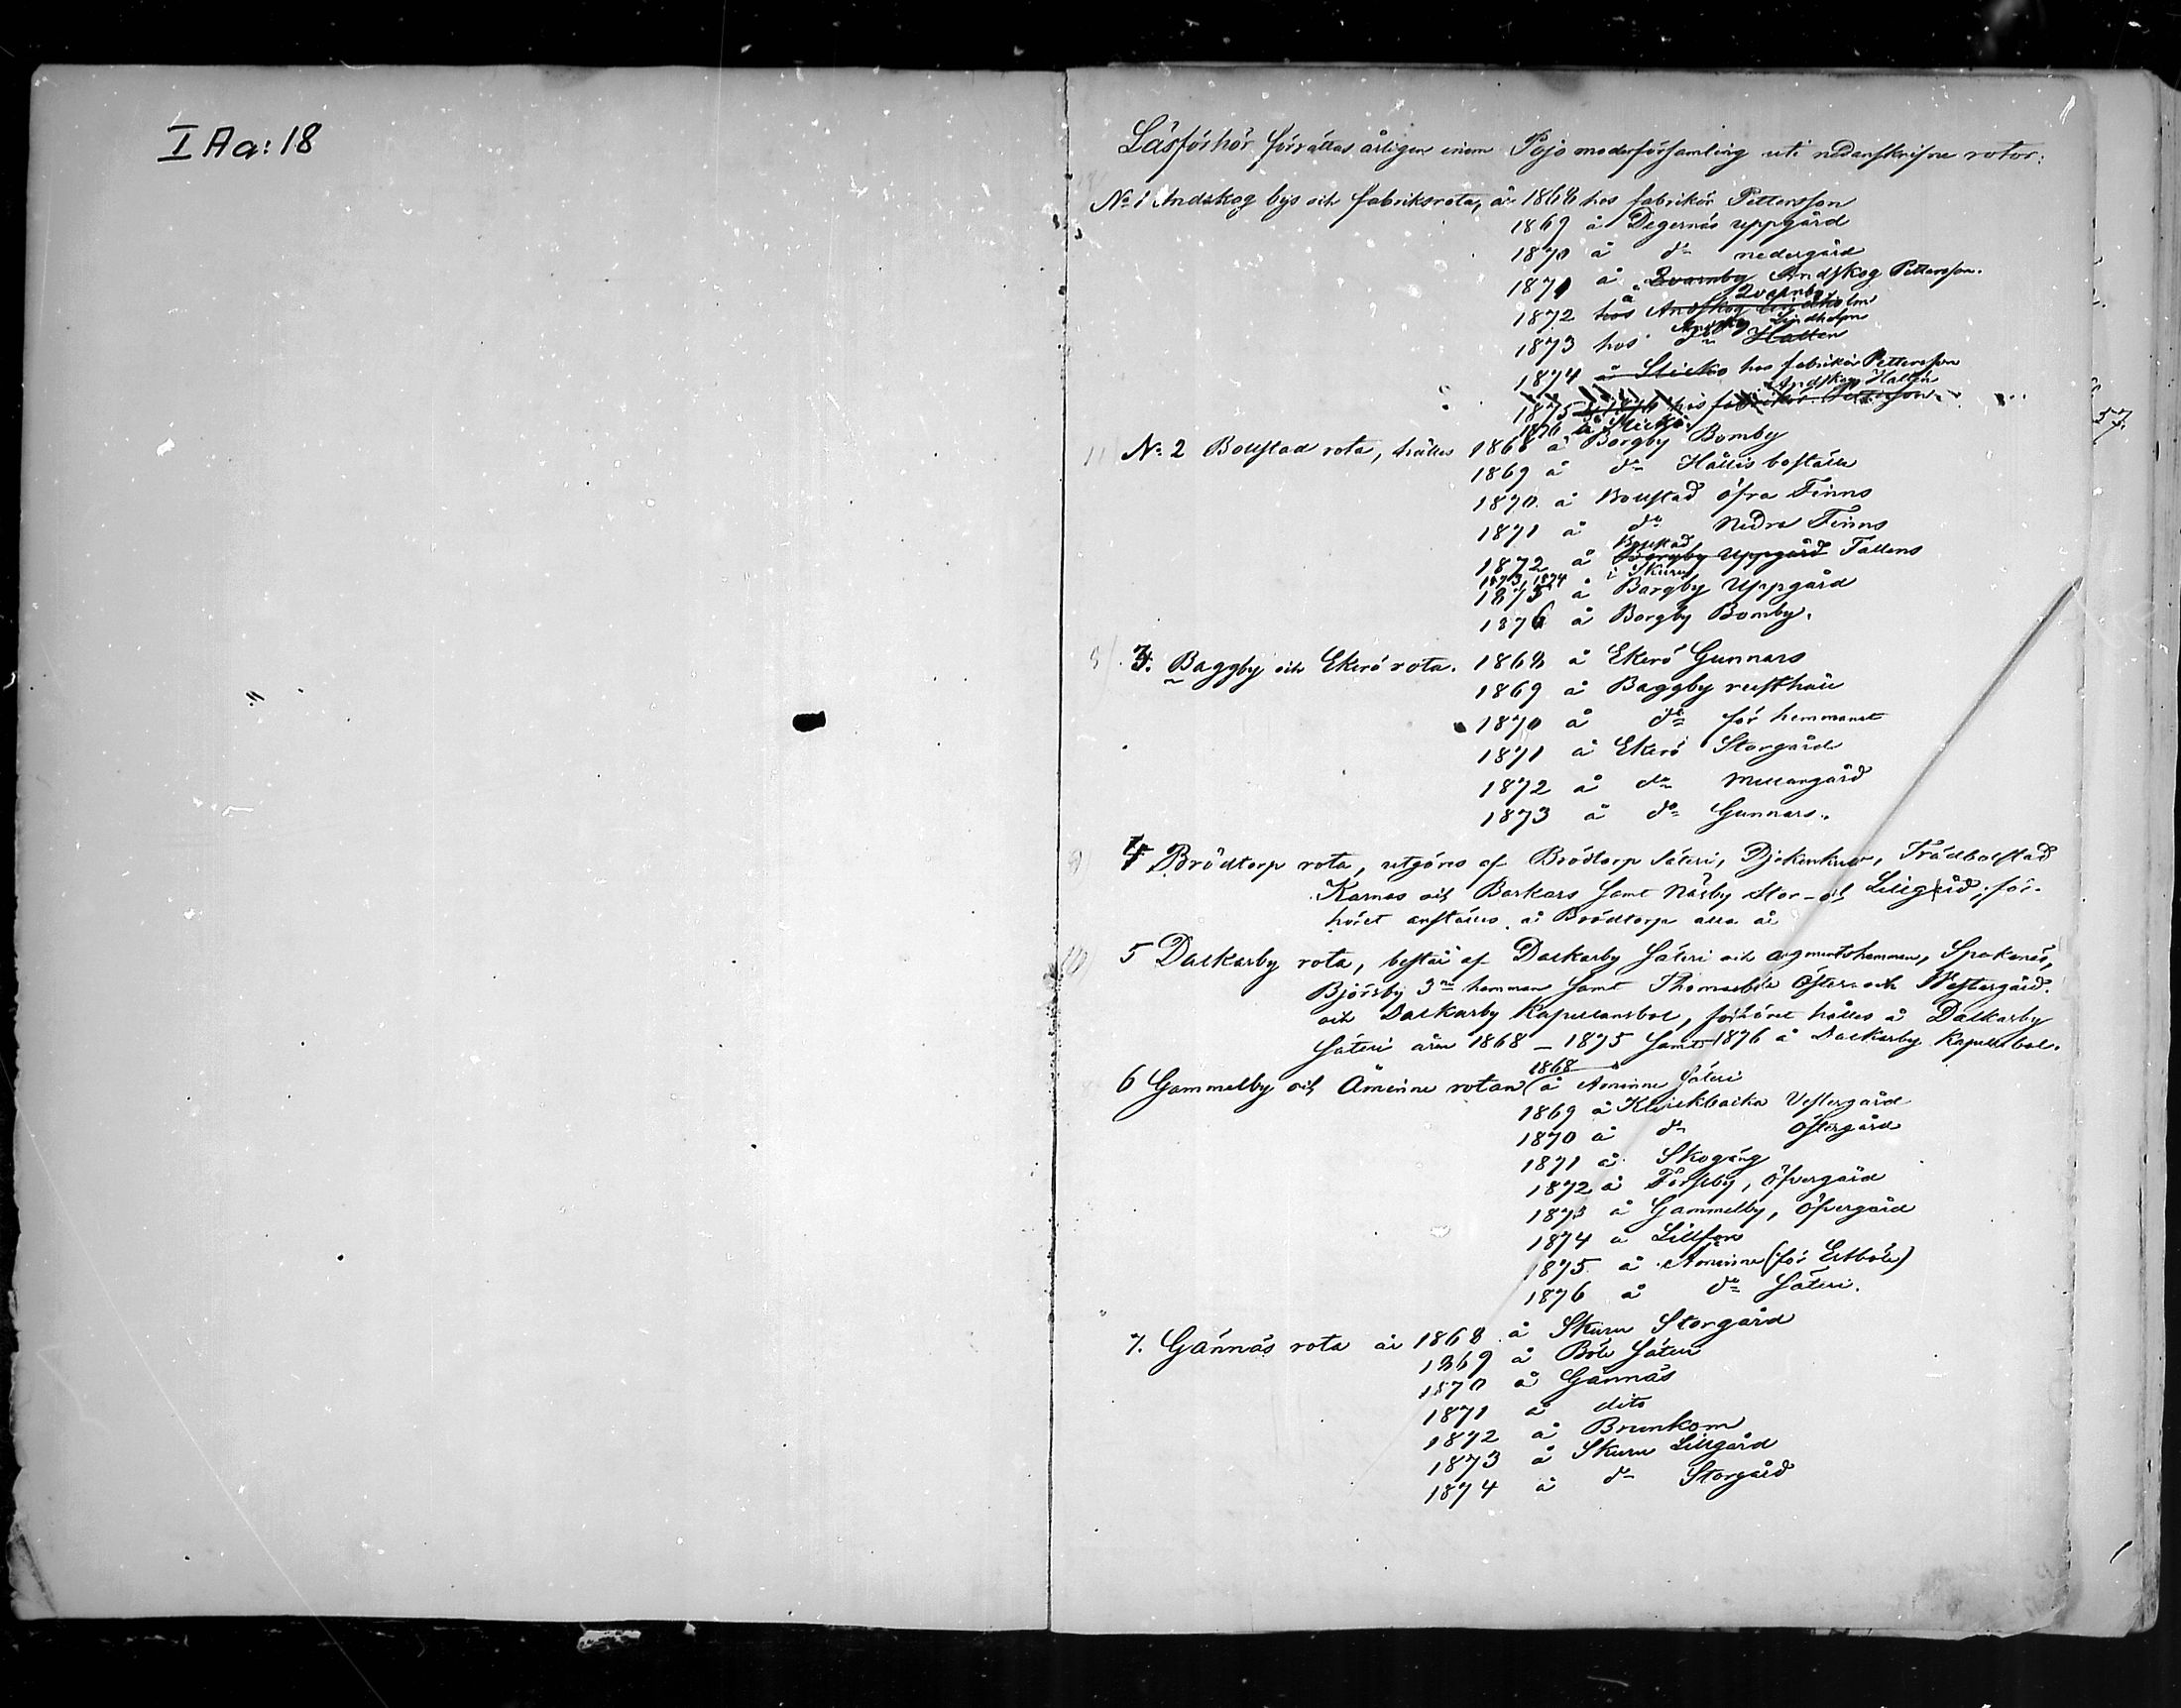 I Aa:18
Läsförhör förrättas årligen inom Pojo moderförsamling uti nedanskrifne rotor:
No 1 Andskog bys och fabriksrota, år 1868 hos fabrikör Pettersson
1869 å Degernäs uppgård
1870 å do nedergård
1871 å Qvarnby Andskog Pettersson.
Qvarnby
1872 hos å Andskog Lindholm
Andskog Lindholm
1873 hos do Hallen
1874 å Slicko hos fabrikör Pettersson
Andskog Hallén
1875 hos fabrikör Pettersson
1876 å Slickö
No 2 Bollstad rota, hålles 1868 å Borgby Bomby
1869 å do Hållis boställe
1870 å Bollstad öfra Finns
1871 å do Nedra Finns
Bollstad
1872 å Borgby Uppgård Tallens
1873, 1874 i Skuru
1875 å Borgby Uppgård
1876 å Borgby Bomby.
3. Baggby och Ekerö rota. 1868 å Ekerö Gunnars
1869 å Baggby rusthåll
1870 å do för hemmanet
1871 å Ekerö Storgård
1872 å do Mellangård
1873 å do Gunnars.
4 Brödtorp rota, utgöres af Brödtorp Säteri, Djekenkulla, Trädbollstad
Karnas och Barkars samt Näsby Stor- och Lillgård; för-
höret anställes å Brödtorp alla år
5 Dalkarby rota, består af Dalkarby Säteri och augmentshemman, Spakanäs,
Björsby 3ne hemman samt Thomasböle Öster- och Westergård.
och Dalkarby Kapellansbol, förhöret hålles å Dalkarby
Säteri åren 1868 - 1875 samt 1876 å Dalkarby Kapellsbol.
1868
6 Gammelby och Åminne rotan å Åminne Säteri
1869 å Klinkbacka Vestergård
1870 å do Östergård
1871 å Skogäng
1872 å Torsby, Öfvergård
1873 å Gammelby, Öfvergård
1874 å Lillfors
1875 å Åminne (för Estböle)
1876 å do Säteri.
7. Gännäs rota år 1868 å Skuru Storgård
1869 å Böle Säteri
1870 å Gännäs
1871 å dito
1872 å Brunkom
1873 å Skuru Lillgård
1874 å do Storgård
57.